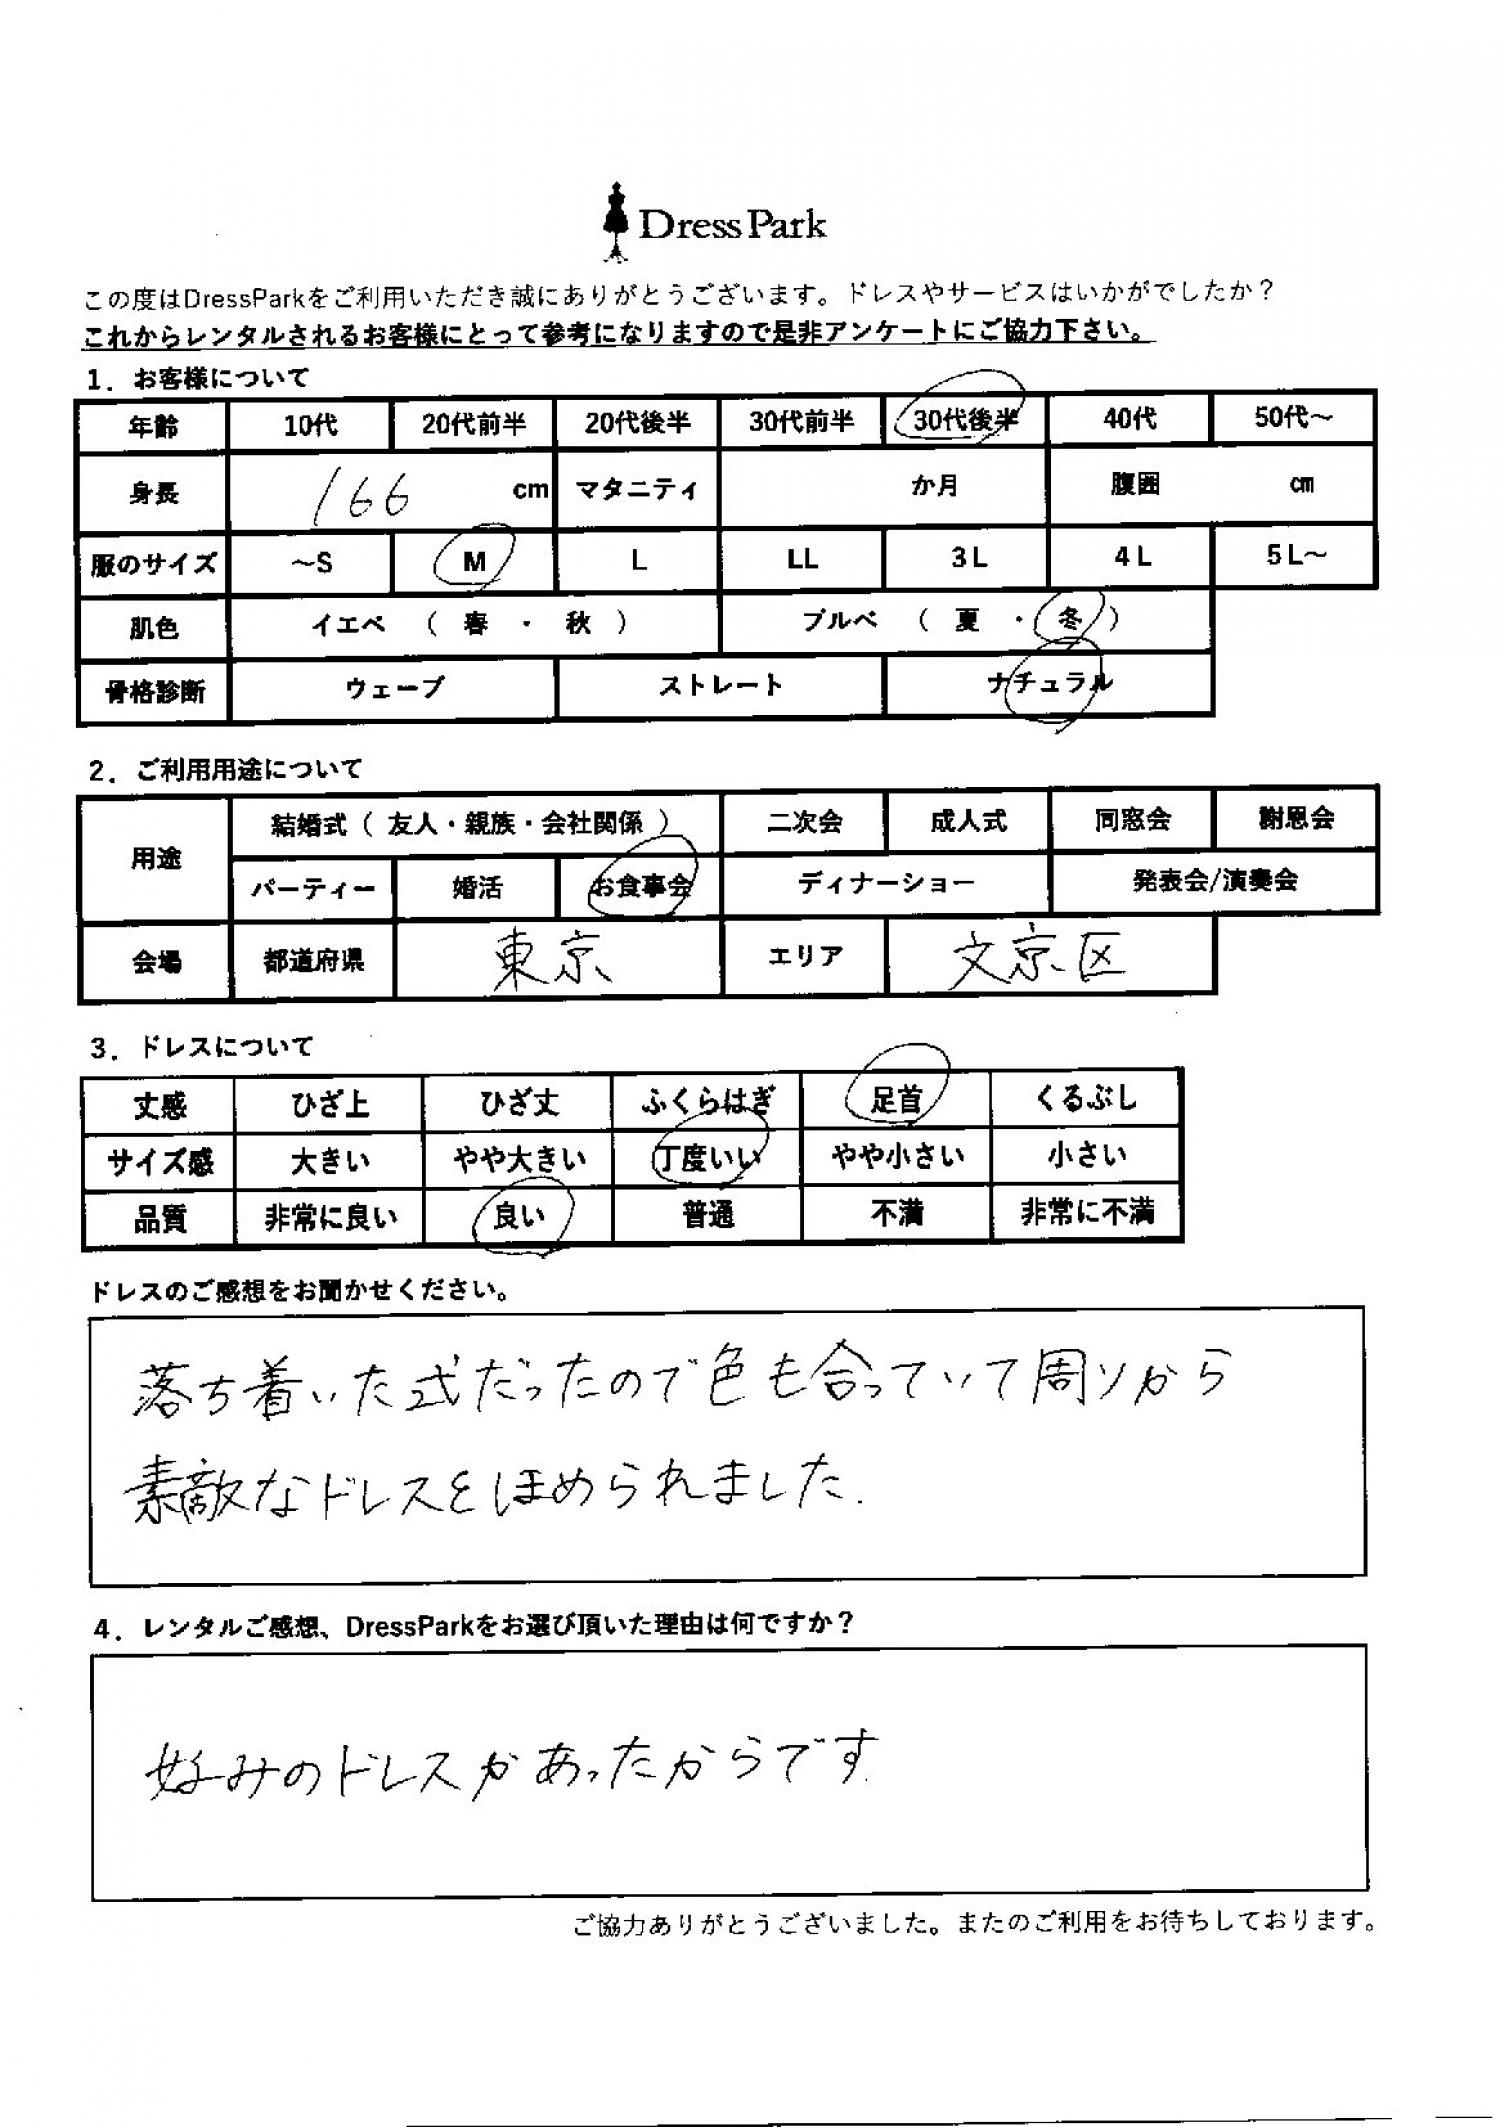 DressPark
この度はDressParkをご利用いただき誠にありがとうございます。ドレスやサービスはいかがでしたか？
これからレンタルされるお客様にとって参考になりますので是非アンケートにご協力下さい。
1．お客様について
年齢 10代 20代前半 20代後半 30代前半 30代後半 40代 50代～
身長 166 cm マタニティ か月 腹囲 ㎝
服のサイズ ～S M L LL 3L 4L 5L～
肌色 イエベ （ 春 ・ 秋 ） ブルベ （ 夏 ・ 冬 ）
骨格診断 ウェーブ ストレート ナチュラル
2．ご利用用途について
用途 結婚式（ 友人・親族・会社関係 ） 二次会 成人式 同窓会 謝恩会
パーティー 婚活 お食事会 ディナーショー 発表会/演奏会
会場 都道府県 東京 エリア 文京区
3．ドレスについて
丈感 ひざ上 ひざ丈 ふくらはぎ 足首 くるぶし
サイズ感 大きい やや大きい 丁度いい やや小さい 小さい
品質 非常に良い 良い 普通 不満 非常に不満
ドレスのご感想をお聞かせください。
落ち着いた式だったので色も合っていて周りから
素敵なドレスとほめられました.
4．レンタルご感想、DressParkをお選び頂いた理由は何ですか？
好みのドレスがあったからです.
ご協力ありがとうございました。またのご利用をお待ちしております。